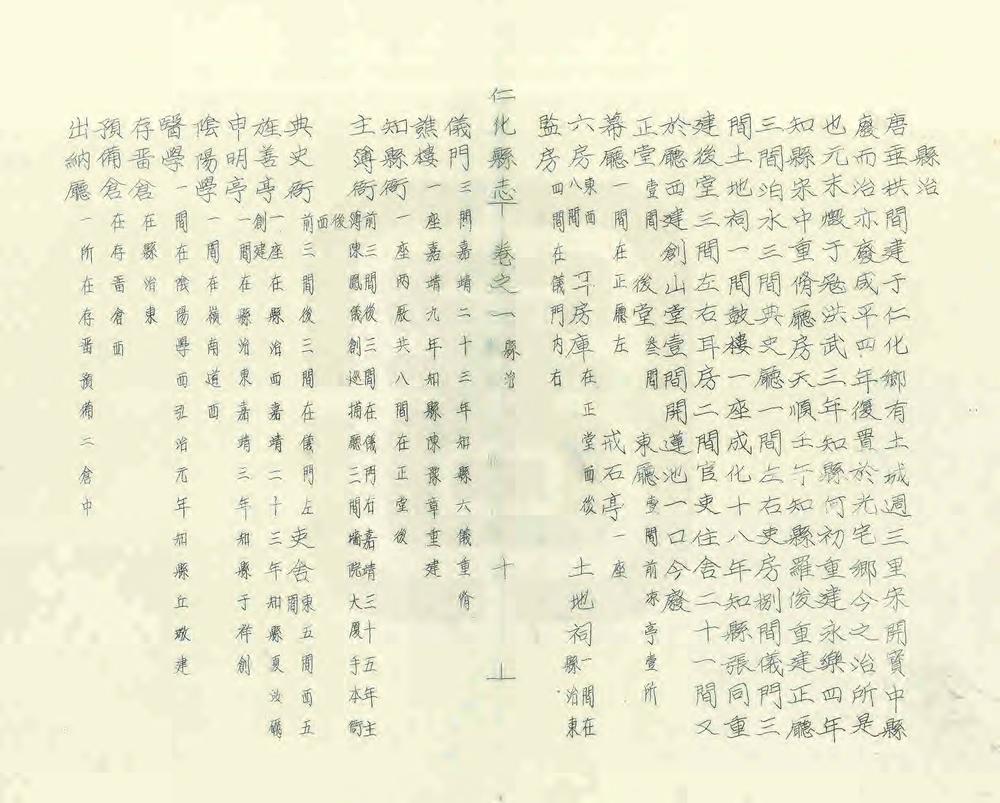 縣治
唐垂拱間建于仁化鄉有土城週三里宋開寶中縣
廢而治亦廢咸平四年復置於光宅鄉今之治所是
也元末燬于寇洪武三年知縣何初重建永樂四年
知縣宋中重脩廳房天順壬午知縣羅俊重建正廳
三間泊水三間典史廳一間左右吏房捌間儀門三
間土地祠一間鼓樓一座成化十八年知縣張同重
建後堂三間左右耳房二間官吏住舍二十一間又
於廳西建創山堂壹間開蓮池一口今廢
正堂壹間 後堂叁間 東廳壹間前來亭壹所
幕廳一間在正廳左 戒石亭一座
六房東西八間 耳房庫在正堂西後 土地祠一間在縣治東
監房四間在儀門內右
仁化縣志 卷之一 縣治 十 上
儀門三間嘉靖二十三年知縣六儀重脩
譙樓一座嘉靖九年知縣陳豫章重建
知縣衙一座兩厫共八間在正堂後
主簿衙前三間後三間在儀門右嘉靖三十五年主簿陳鳳儀創巡捕廳三間墻院大廈手本衙後西
典史衙前三間後三間在儀門左 吏舍東五間西五間
旌善亭一座在縣治西嘉靖二十三年知縣夏汝礪創建
申明亭一間在縣治東嘉靖三年知縣于祥創
陰陽學一間在嶺南道西
醫學一間在陰陽學西弘治元年知縣丘璥建
存晋倉在縣治東
預備倉在存晋倉西
出納廳一所在存晋預備二倉中